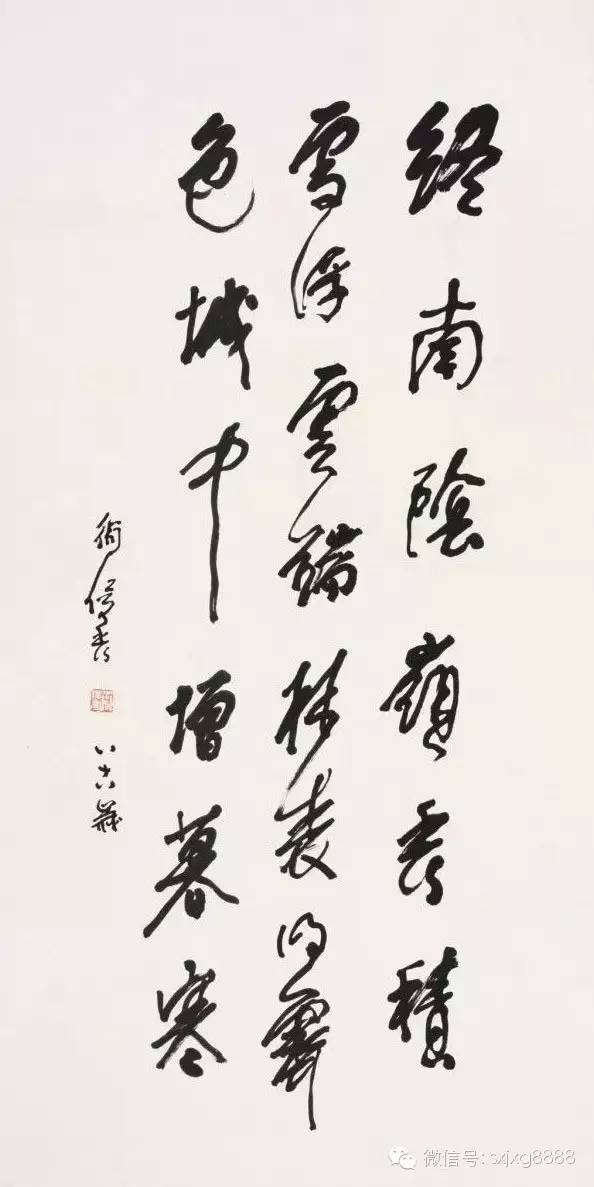 終南陰嶺秀積
雪浮雲端林表明霽
色城中增暮寒
衛俊秀
歲
微信号: sxjxg8888